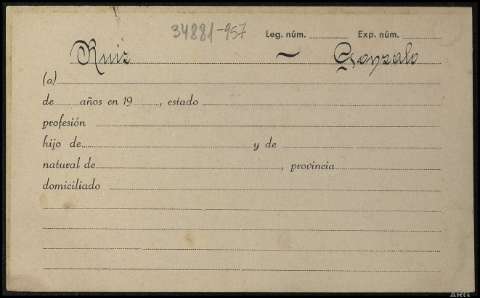 34881-957 Leg. núm. Exp. núm.
Ruiz — Gonzalo
(a)
de años en 19 , estado
profesión
hijo de y de
natural de , provincia
domiciliado